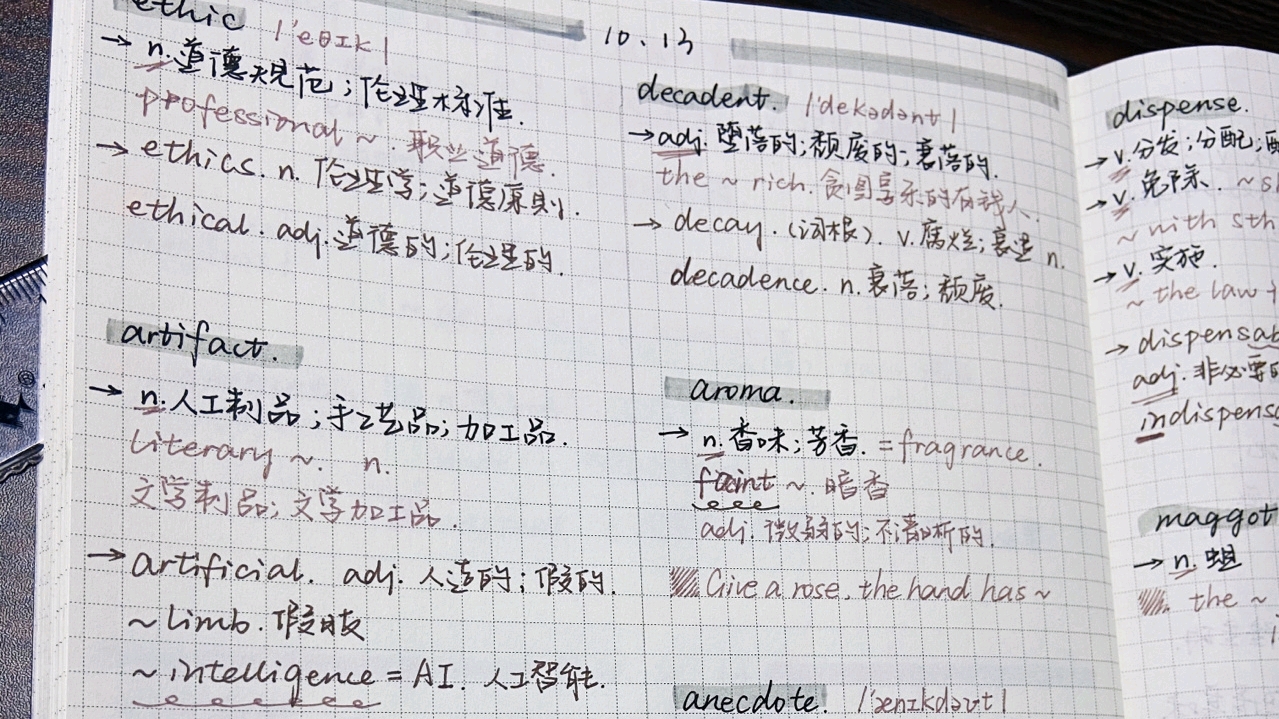 ethic /'eθɪk/
→ n.道德规范;伦理标准.
professional ~. 职业道德.
→ ethics. n. 伦理学;道德原则.
ethical. adj.道德的;伦理的.
artifact.
→ n.人工制品;手工艺品;加工品.
literary ~. n.
文学制品;文学加工品.
→ artificial. adj. 人造的;假的.
~ limb. 假肢
~ intelligence = AI. 人工智能.
10.13
decadent. /'dekədənt/
→ adj. 堕落的;颓废的;衰落的.
the ~ rich. 贪图享乐的有钱人.
→ decay. (词根). v.腐烂;衰退 n.
decadence. n.衰落;颓废.
aroma.
→ n.香味;芳香. = fragrance.
faint ~. 暗香
adj. 微弱的;不清晰的.
Give a rose, the hand has ~
anecdote. /'ænɪkdəʊt/
dispense.
→ v.分发;分配;
→ v.免除. ~
~ with sth
→ v.实施.
~ the law
→ dispensa
adj.非必要的
indispens
maggot
→ n.蛆
the ~